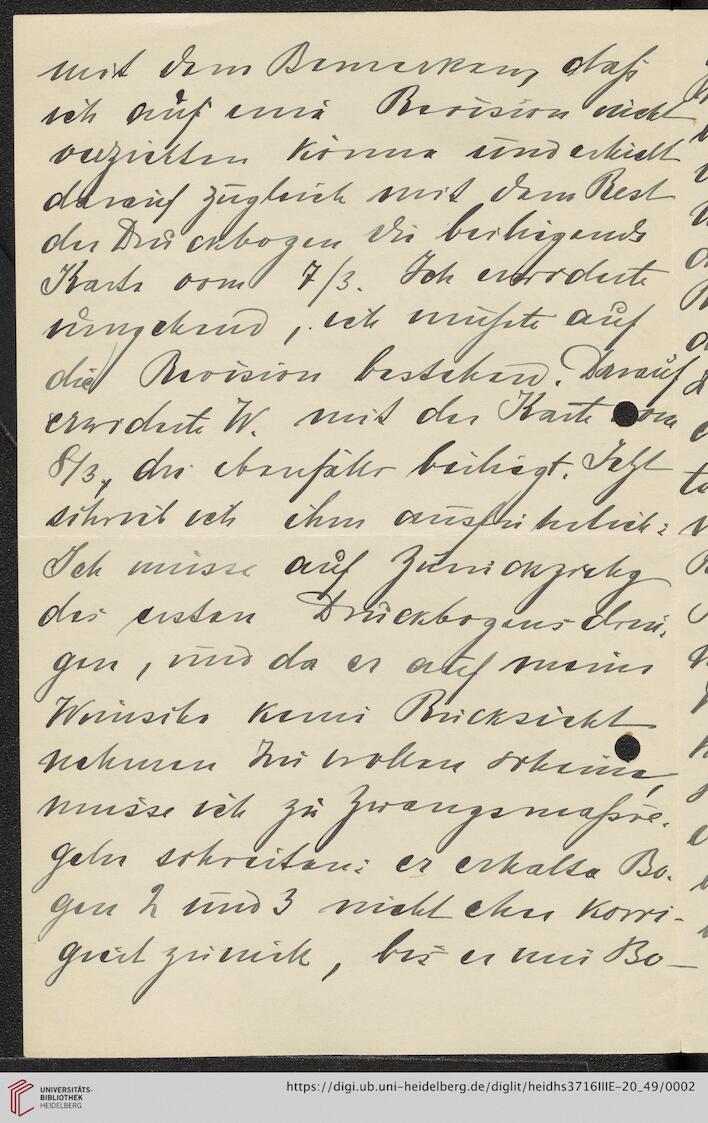 mit dem Bemerken, daß
ich auf eine Revision nicht
verzichten könne und erhielt
darauf zugleich mit dem Rest
der Druckbogen die beiliegende
Karte vom 7/3. Ich erwiderte
umgehend, ich müßte auf
die Revision bestehen. Darauf
erwiderte W. mit der Karte vom
8/3, die ebenfalls beiliegt. Jetzt
schrieb ich ihm ausführlich:
Ich müsse auf Zurückziehg
des ersten Druckbogens drin-
gen, und da er auf meine
Wünsche keine Rücksicht
nehmen zu wollen scheine,
müsse ich zu Zwangsmaßre-
geln schreiten: er erhalte Bo-
gen 2 und 3 nicht eher korri-
giert zurück, bis er mir Bo-
UNIVERSITÄTS-
BIBLIOTHEK
HEIDELBERG
https://digi.ub.uni-heidelberg.de/diglit/heidhs3716IIIE-20_49/0002